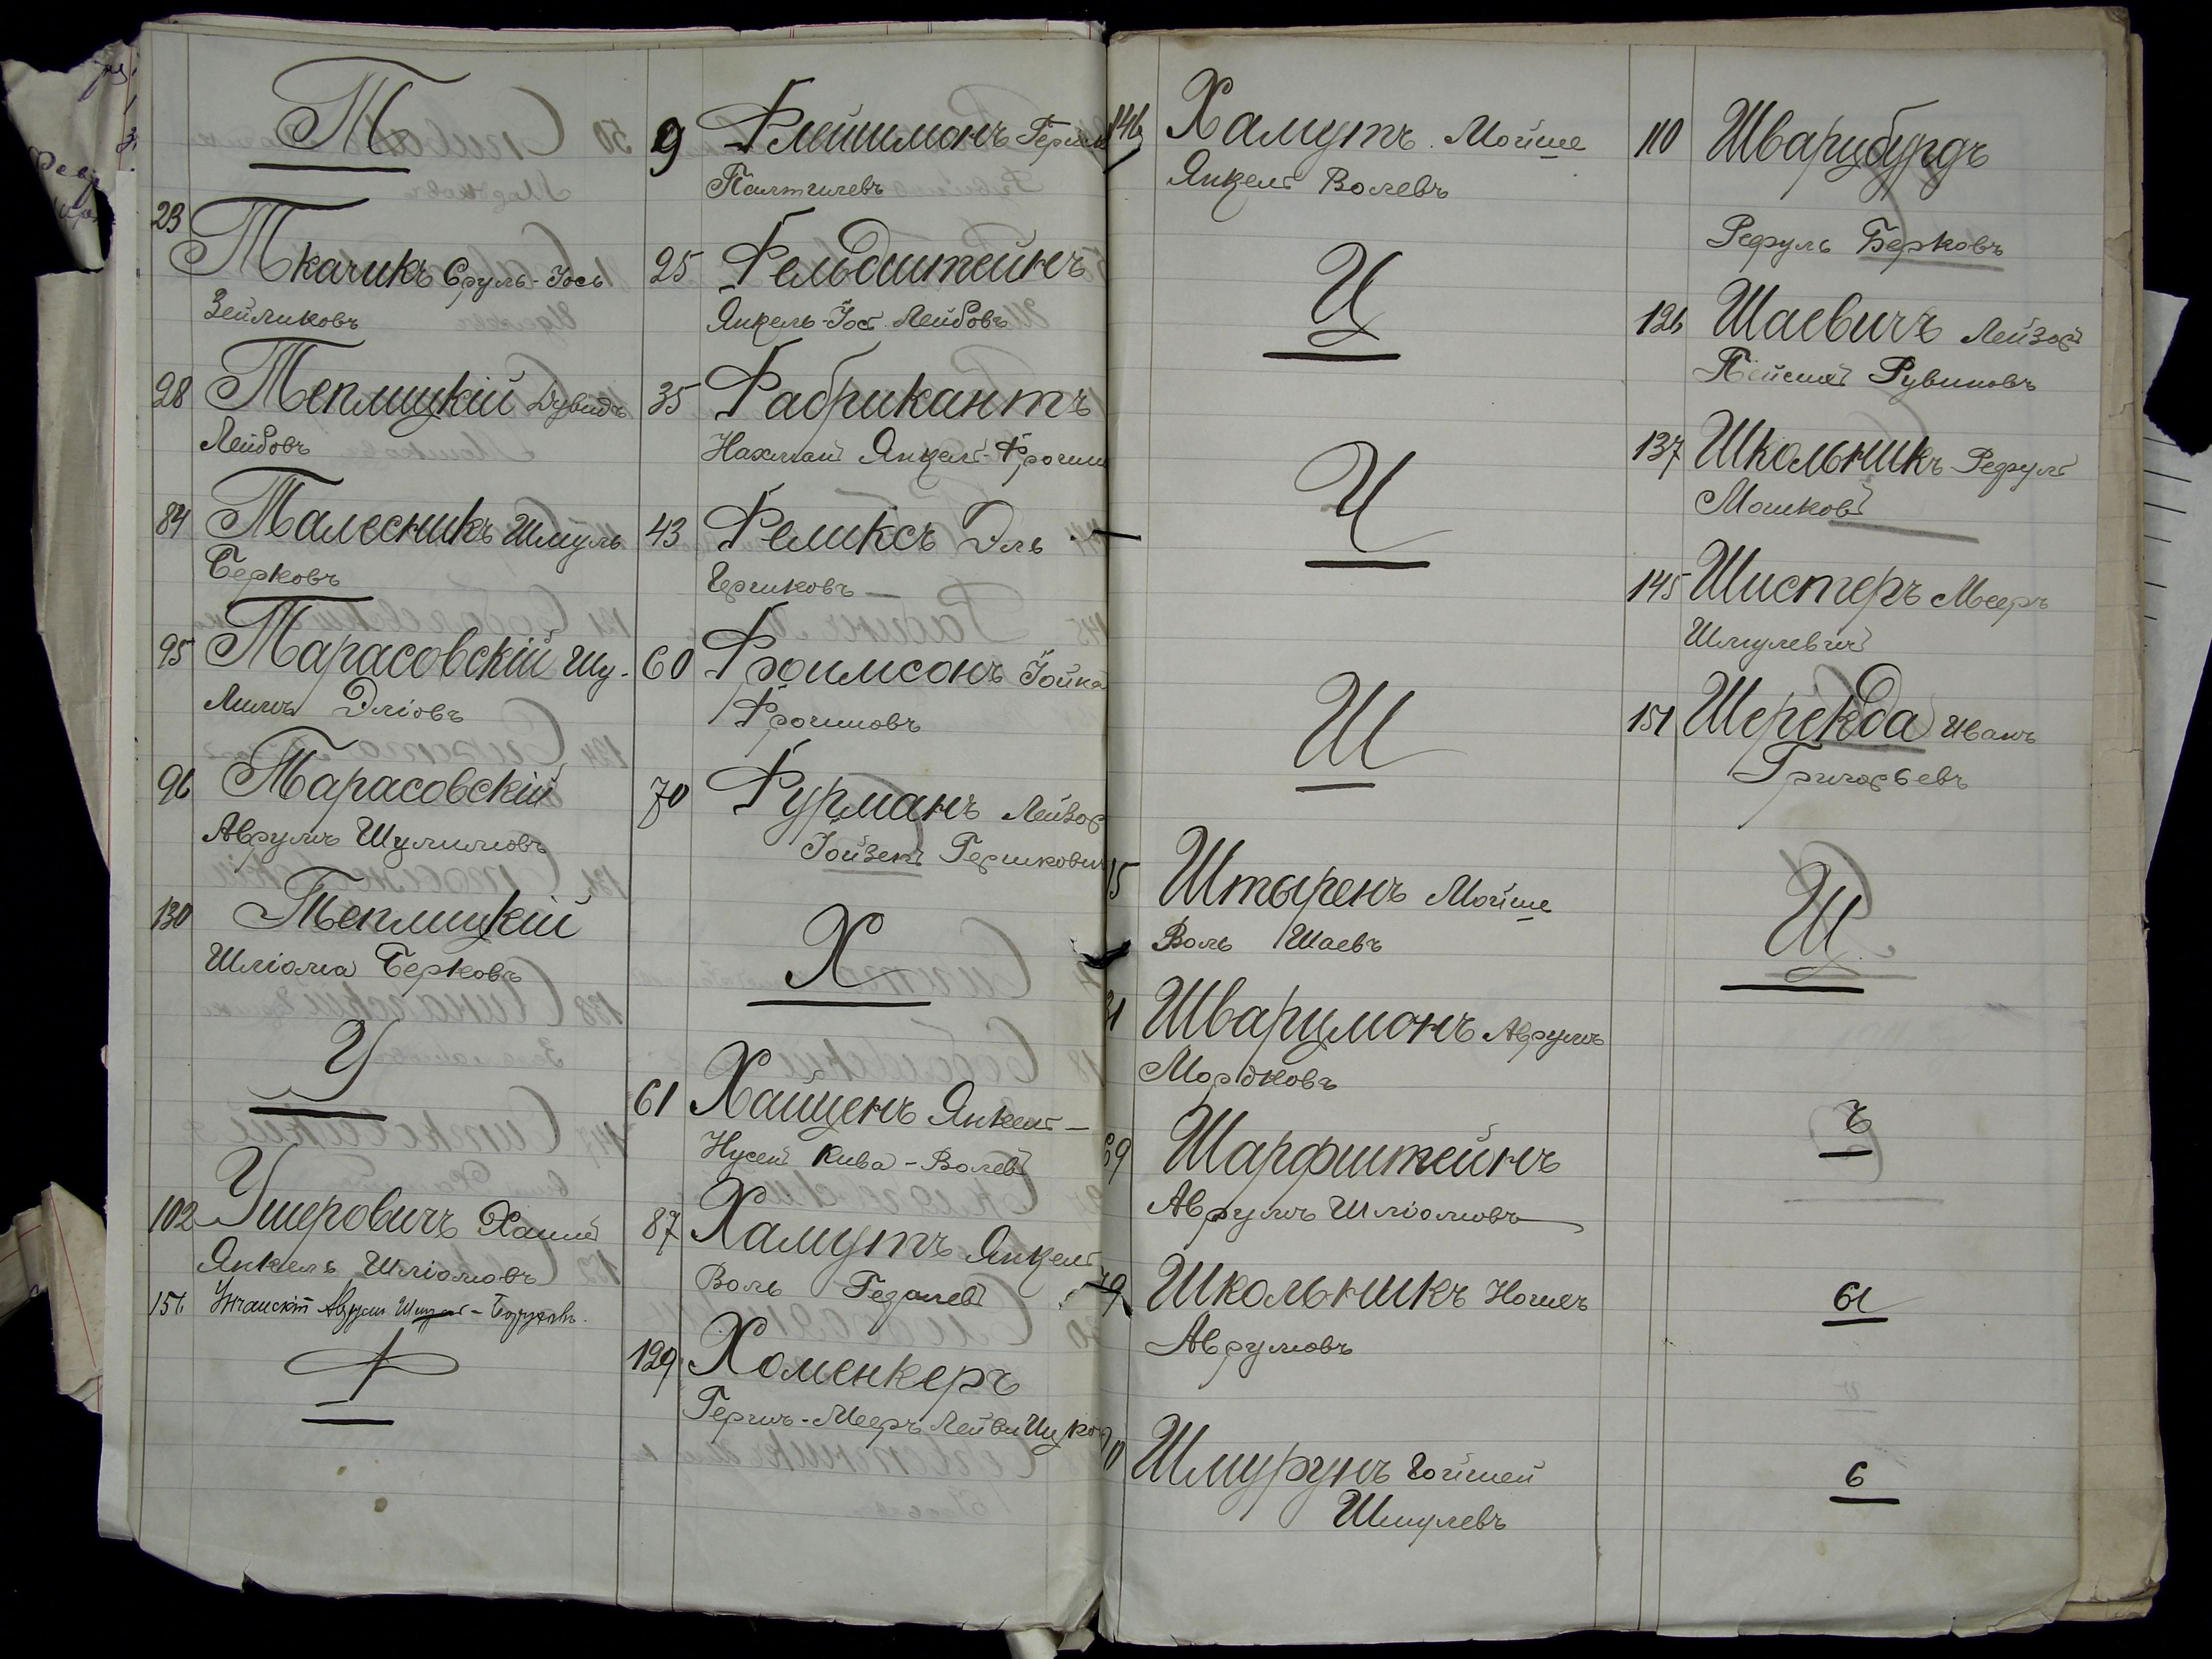 Т
23 Ткачикъ Сруль-Iось
Зейликовъ
28 Теплицкій Дувидъ
Лейбовъ
84 Талесникъ Шмуль
Берковъ
95 Тарасовскій Шу-
лимъ Эліовъ
96 Тарасовскій
Аврумъ Шулимовъ
130 Теплицкій
Шліома Берковъ
У
102 Ушеровичъ Хаимъ
Янкель Шліомовъ
156 Аврумъ
Ф
9 Флейшмонъ Герш
Палтилевъ
25 Фельдштейнъ
Янкель-Іос. Лейбовъ
35 Фабрикантъ
Нахман Янкел-Фроим
43 Феликсъ Эль
Гершковъ
60 Фроимсонъ Іойна
Фроимовъ
70 Фурманъ Лейзор
Іойзеп Гершкович
Х
61 Хайценъ Янкел-
Нусен Кива-Волев
87 Хамутъ Янкел
Воль Гедалев
129 Хоменкеръ
Гершъ-Мееръ Лейви Ицко
146 Хамутъ Мойше
Янкел Волевъ
Ц
Ч
Ш
15 Штыренъ Мойше
Воль Шаевъ
31 Шварцмонъ Аврумъ
Мордковъ
69 Шарфштейнъ
Аврумъ Шліомовъ
79 Школьникъ Ногъ
Аврумовъ
Шмурунъ
Шмулевъ
110 Шварцбурдъ
Рефуль Берковъ
126 Шаевичъ Лейзор
Пейсих Рувиновъ
137 Школьникъ Рефул
Мошков
145 Шистеръ Мееръ
Шмулевич
151 Шерекда Иванъ
Григорьевъ
Щ
Ъ
Ы
Ь